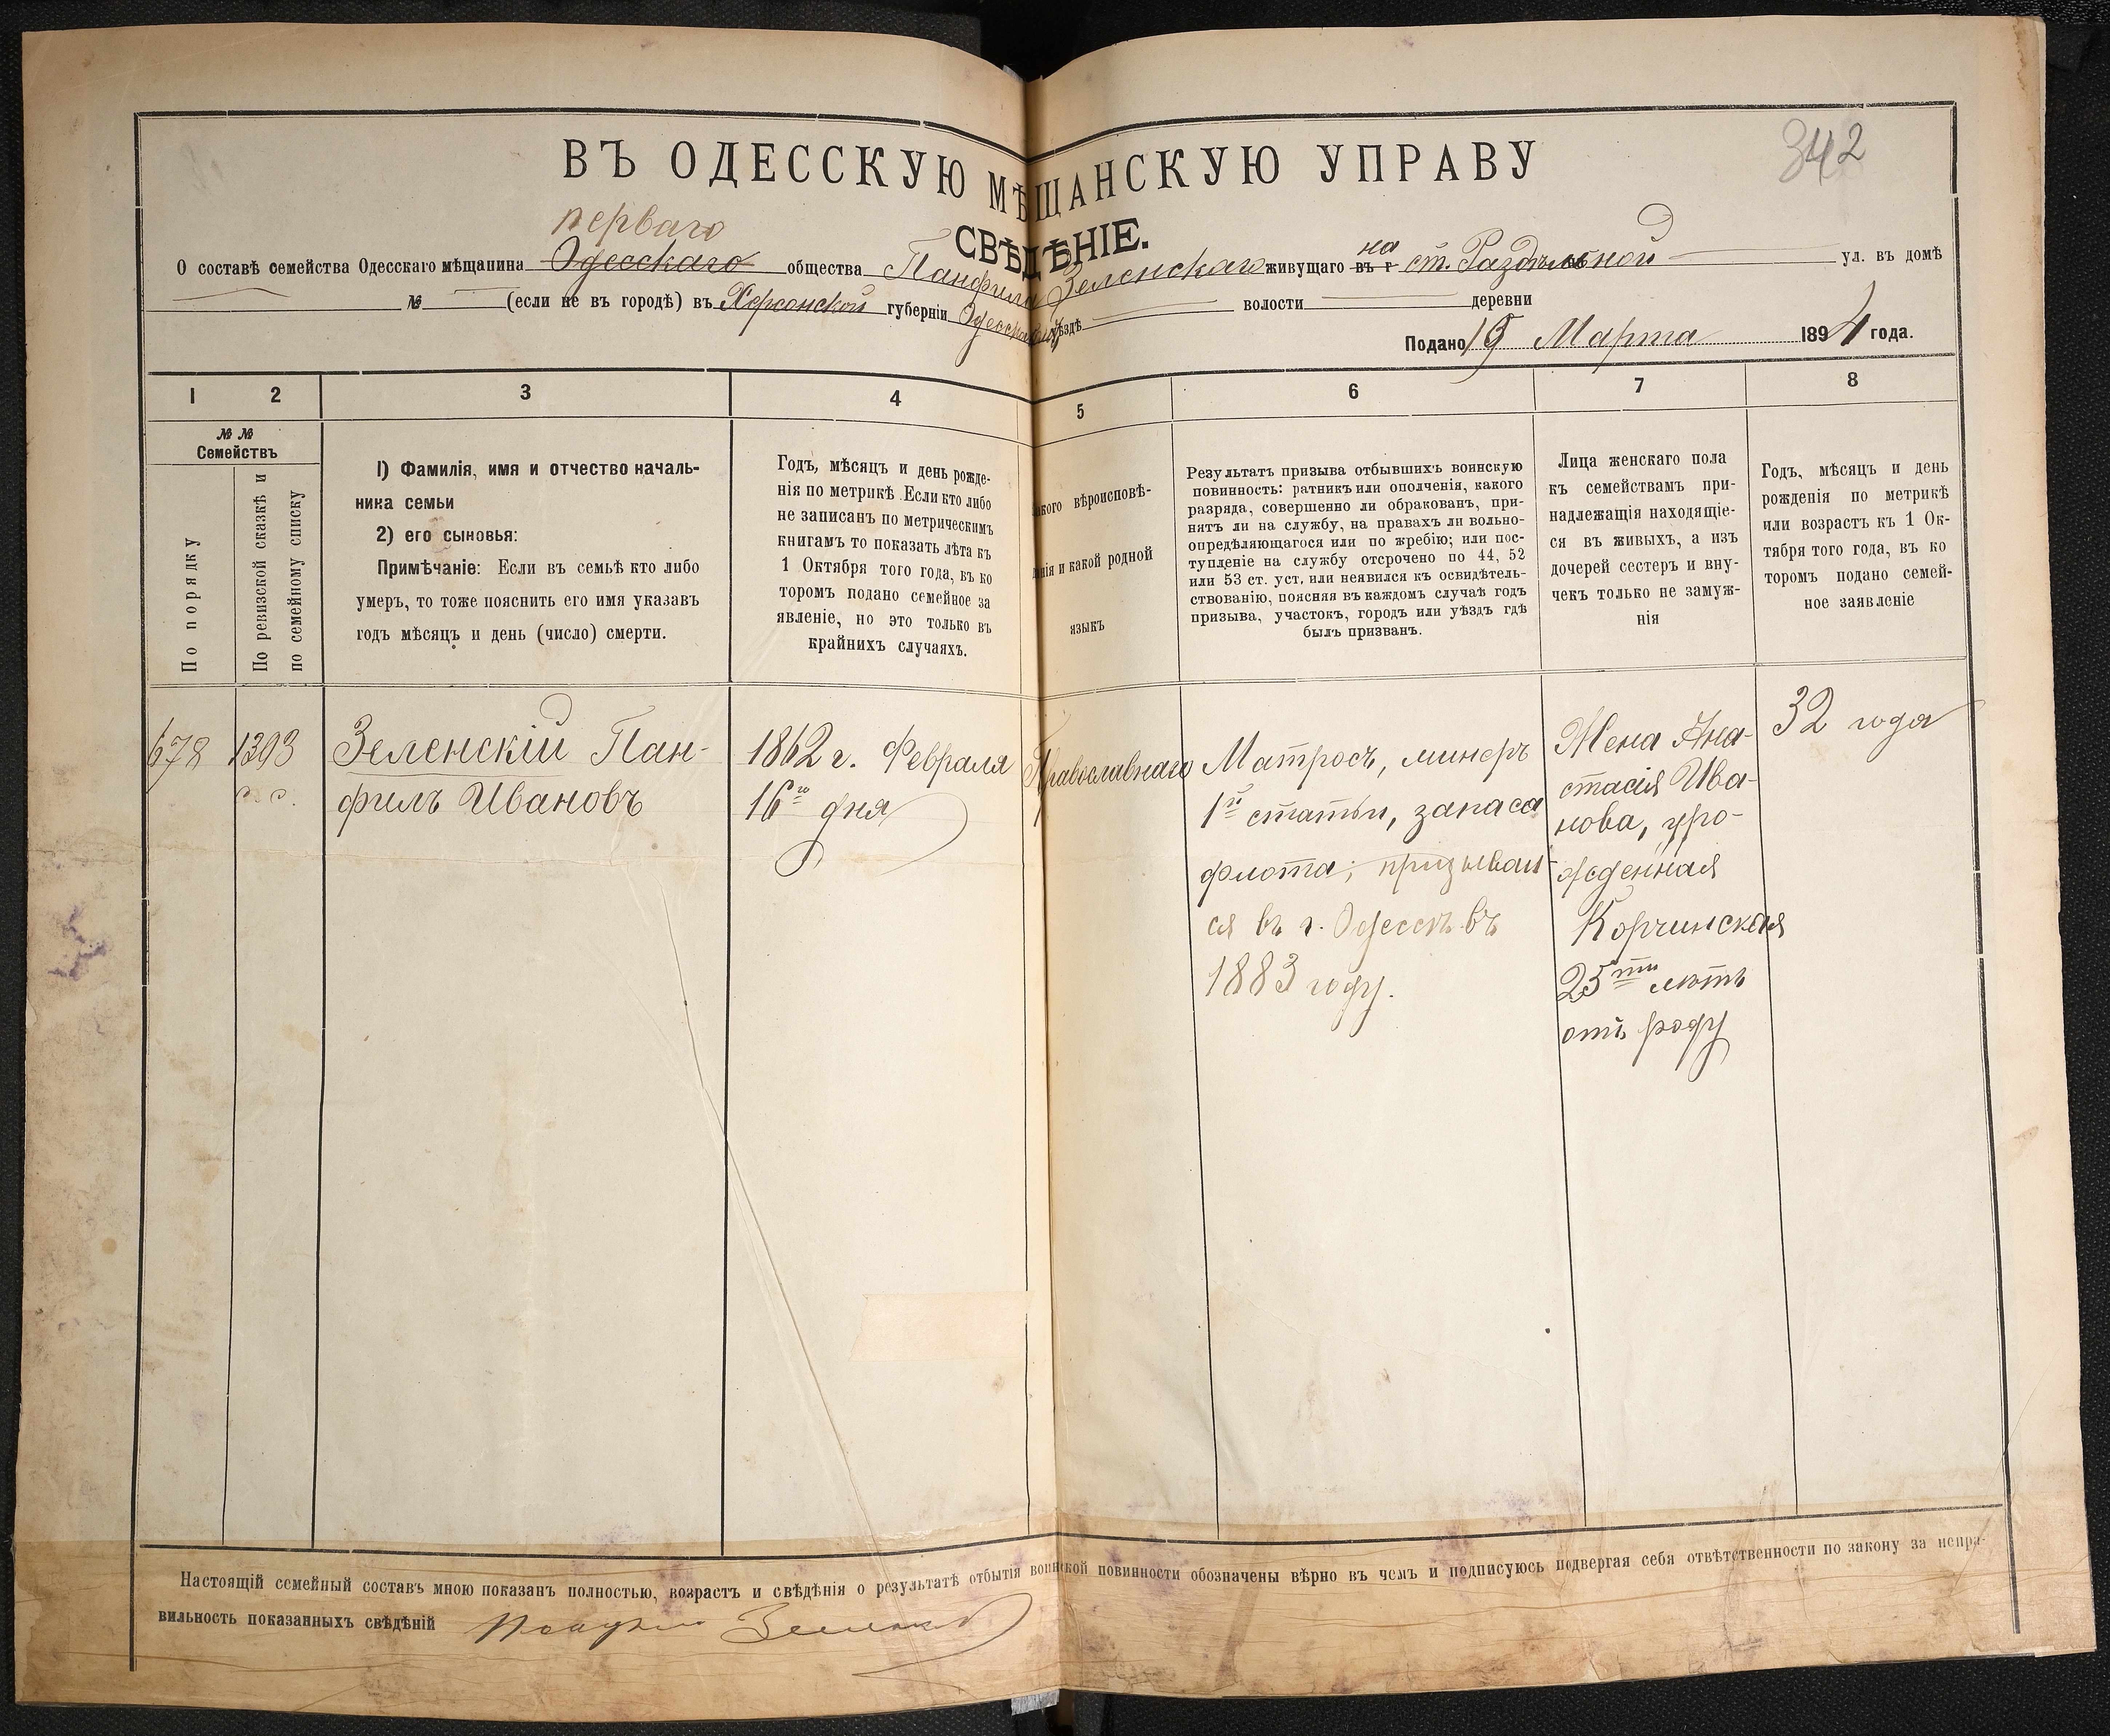 342
ВЪ ОДЕССКУЮ МѢЩАНСКУЮ УПРАВУ
СВѢДѢНІЕ.
перваго
О составѣ семейства Одесскаго мѣщанина Одесскаго общества Панфила Зеленскаго живущаго въ г на ст. Раздѣльной ул. въ домѣ
№ (если не въ городѣ) въ Херсонской губерніи Одесскомъ уѣздѣ волости деревни
Подано 19 Марта 1894 года.
1 2 3 4 5 6 7 8
№ №
Семействъ
По порядку
По ревизской сказкѣ и
по семейному списку
1) Фамилія, имя и отчество началь-
ника семьи
2) его сыновья:
Примѣчаніе: Если въ семьѣ кто либо
умеръ, то тоже пояснить его имя указавъ
годъ мѣсяцъ и день (число) смерти.
Годъ, мѣсяцъ и день рожде-
нія по метрикѣ. Если кто либо
не записанъ по метрическимъ
книгамъ то показать лѣта къ
1 Октября того года, въ ко
торомъ подано семейное за
явленіе, но это только въ
крайнихъ случаяхъ.
акого вѣроисповѣ-
данія и какой родной
языкъ
Результатъ призыва отбывшихъ воинскую
повинность: ратникъ или ополченія, какого
разряда, совершенно ли обракованъ, при-
нятъ ли на службу, на правахъ ли вольно-
опредѣляющагося или по жребію; или пос-
тупленіе на службу отсрочено по 44, 52
или 53 ст. уст, или неявился къ освидѣтель-
ствованію, поясняя въ каждомъ случаѣ годъ
призыва, участокъ, городъ или уѣздъ гдѣ
былъ призванъ.
Лица женскаго пола
къ семействамъ при-
надлежащія находящіе-
ся въ живыхъ, а изъ
дочерей сестеръ и вну-
чекъ только не замуж-
нія
Годъ, мѣсяцъ и день
рожденія по метрикѣ
или возрастъ къ 1 Ок-
тября того года, въ ко
торомъ подано семей-
ное заявленіе
678
1393
с. с.
Зеленскій Пан-
филъ Ивановъ
1862 г. Февраля
16го дня
Православнаго
Матросъ, минеръ
1й статьи, запаса
флота; призывал-
ся въ г. Одессѣ въ
1883 году.
Жена Ана-
стасія Ива-
нова, уро-
жденная
Корчинская
25ти лѣтъ
отъ роду
32 года
Настоящій семейный составъ мною показанъ полностью, возрастъ и свѣдѣнія о результатѣ отбытія воинской повинности обозначены вѣрно въ чемъ и подписуюсь подвергая себя отвѣтственности по закону за непра-
вильность показанныхъ свѣдѣній Панфил Зеленский